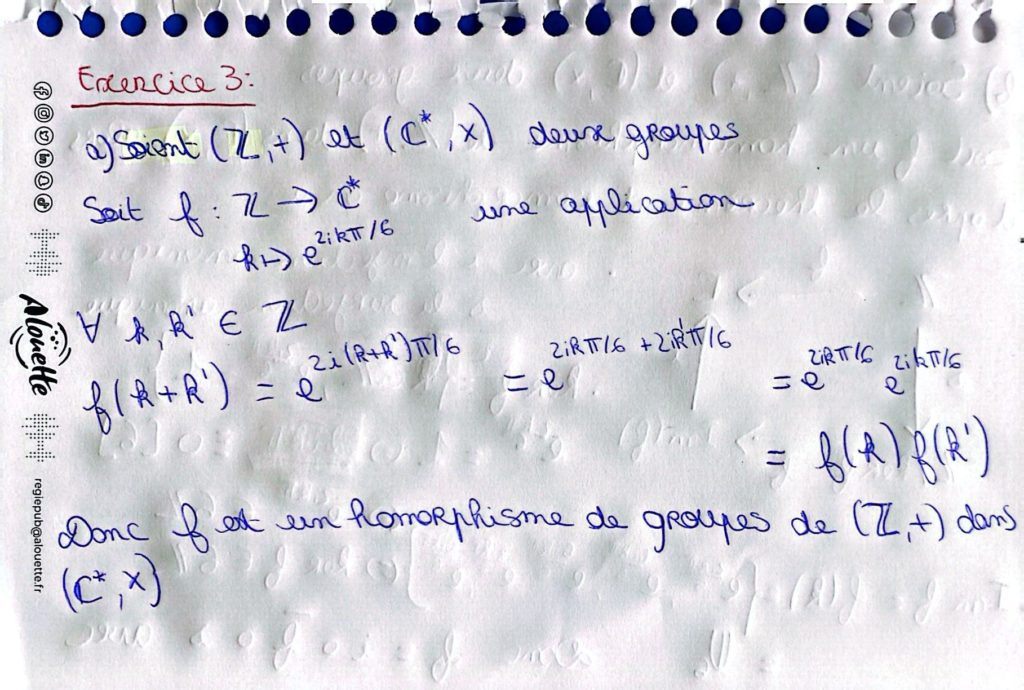 Exercice 3:
a) Soient (ℤ,+) et (ℂ*,×) deux groupes
Soit f : ℤ → ℂ* une application
k ↦ e^{2ikπ/6}
∀ k, k' ∈ ℤ
f(k+k') = e^{2i(k+k')π/6} = e^{2ikπ/6 + 2ik'π/6} = e^{2ikπ/6} e^{2ikπ/6}
= f(k) f(k')
Donc f est un homorphisme de groupes de (ℤ,+) dans
(ℂ*,×)
Alouette
regiepub@alouette.fr